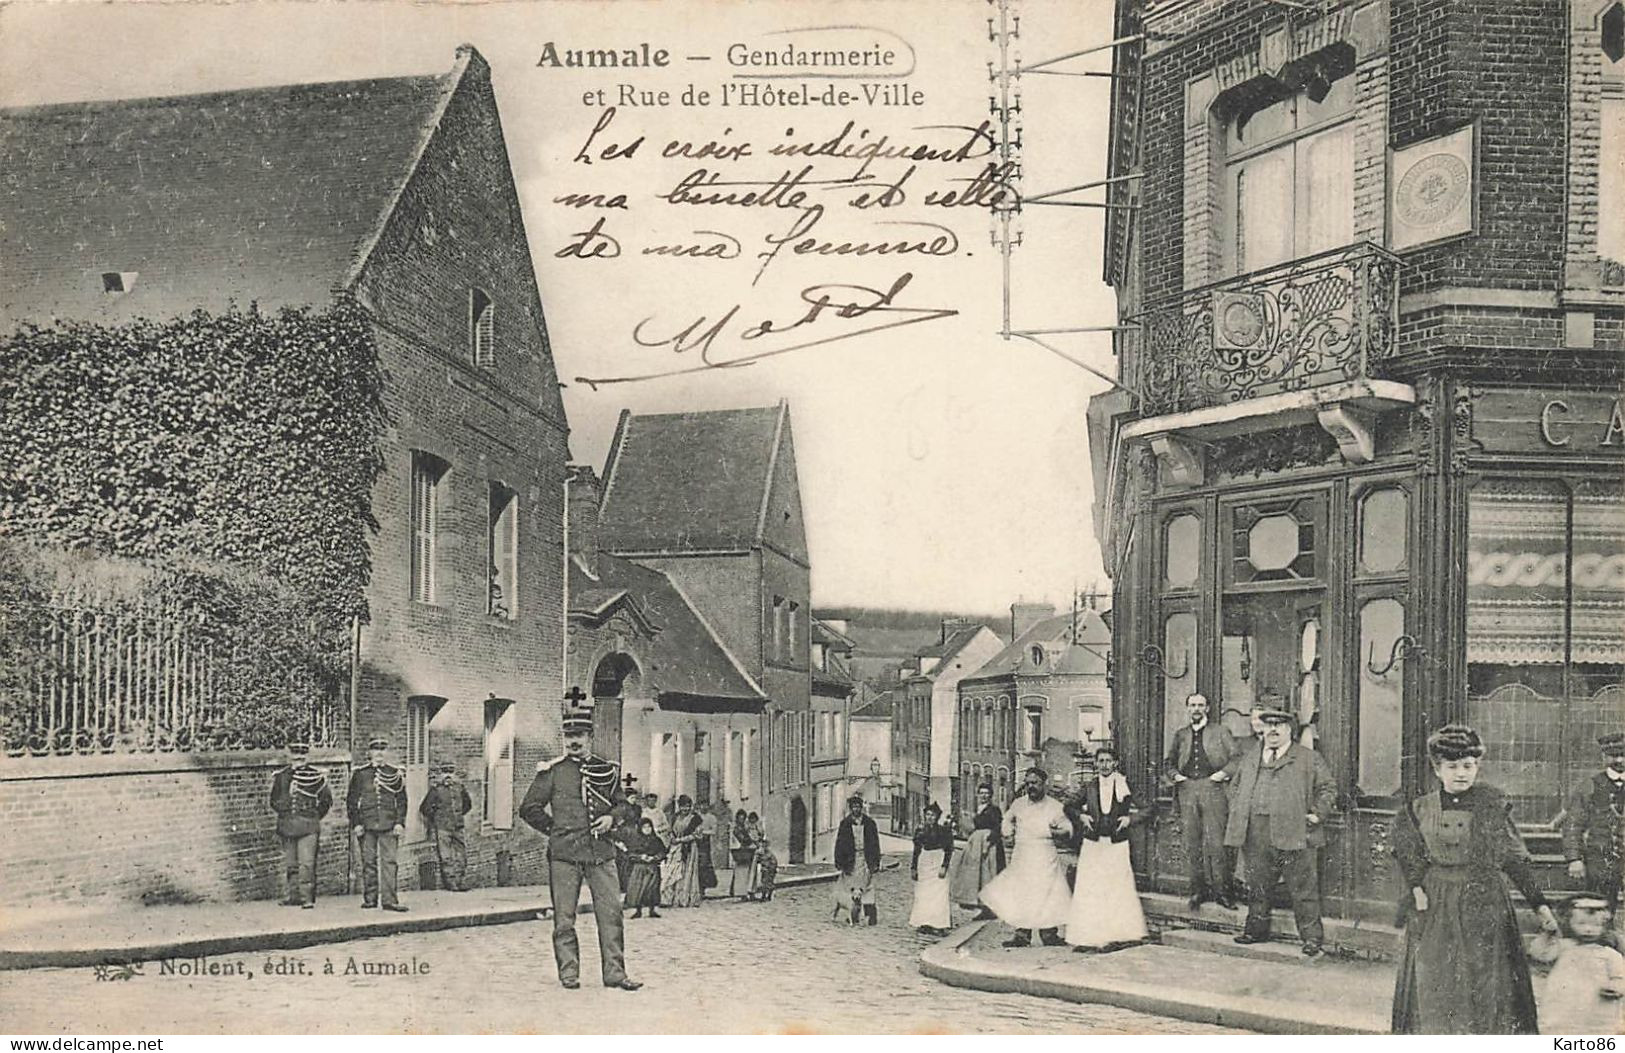 Aumale — Gendarmerie
et Rue de l'Hôtel-de-Ville
Les croix indiquent
ma binette et celle
de ma femme.
CA
Nollent, édit. à Aumale
www.delcampe.net
Karto86